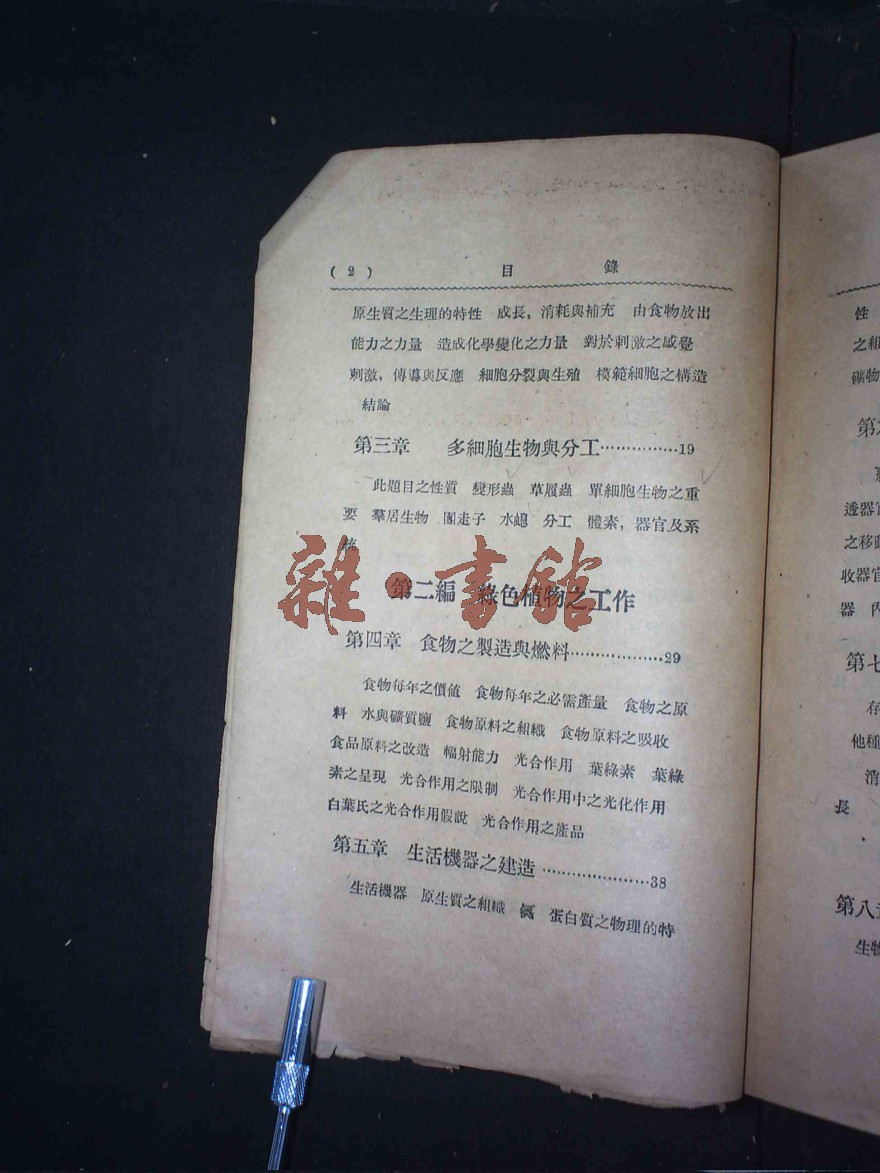 ( 2 ) 目 錄
原生質之生理的特性 成長，消耗與補充 由食物放出
能力之力量 造成化學變化之力量 對於刺激之感覺
刺激，傳導與反應 細胞分裂與生殖 模範細胞之構造
結論
第三章 多細胞生物與分工……………19
此題目之性質 變形蟲 草履蟲 單細胞生物之重
要 羣居生物 團走子 水螅 分工 體素，器官及系
統
雜·書館
第二編 綠色植物之工作
第四章 食物之製造與燃料………………29
食物每年之價值 食物每年之必需產量 食物之原
料 水與礦質鹽 食物原料之組織 食物原料之吸收
食品原料之改造 輻射能力 光合作用 葉綠素 葉綠
素之呈現 光合作用之限制 光合作用中之光化作用
白葉氏之光合作用假說 光合作用之產品
第五章 生活機器之建造…………………38
生活機器 原生質之組織 蛋白質之物理的特
性
之組
礦物
第
透器官
之移
收器官
器 內
第七
存
他種
消
長
第八章
生物